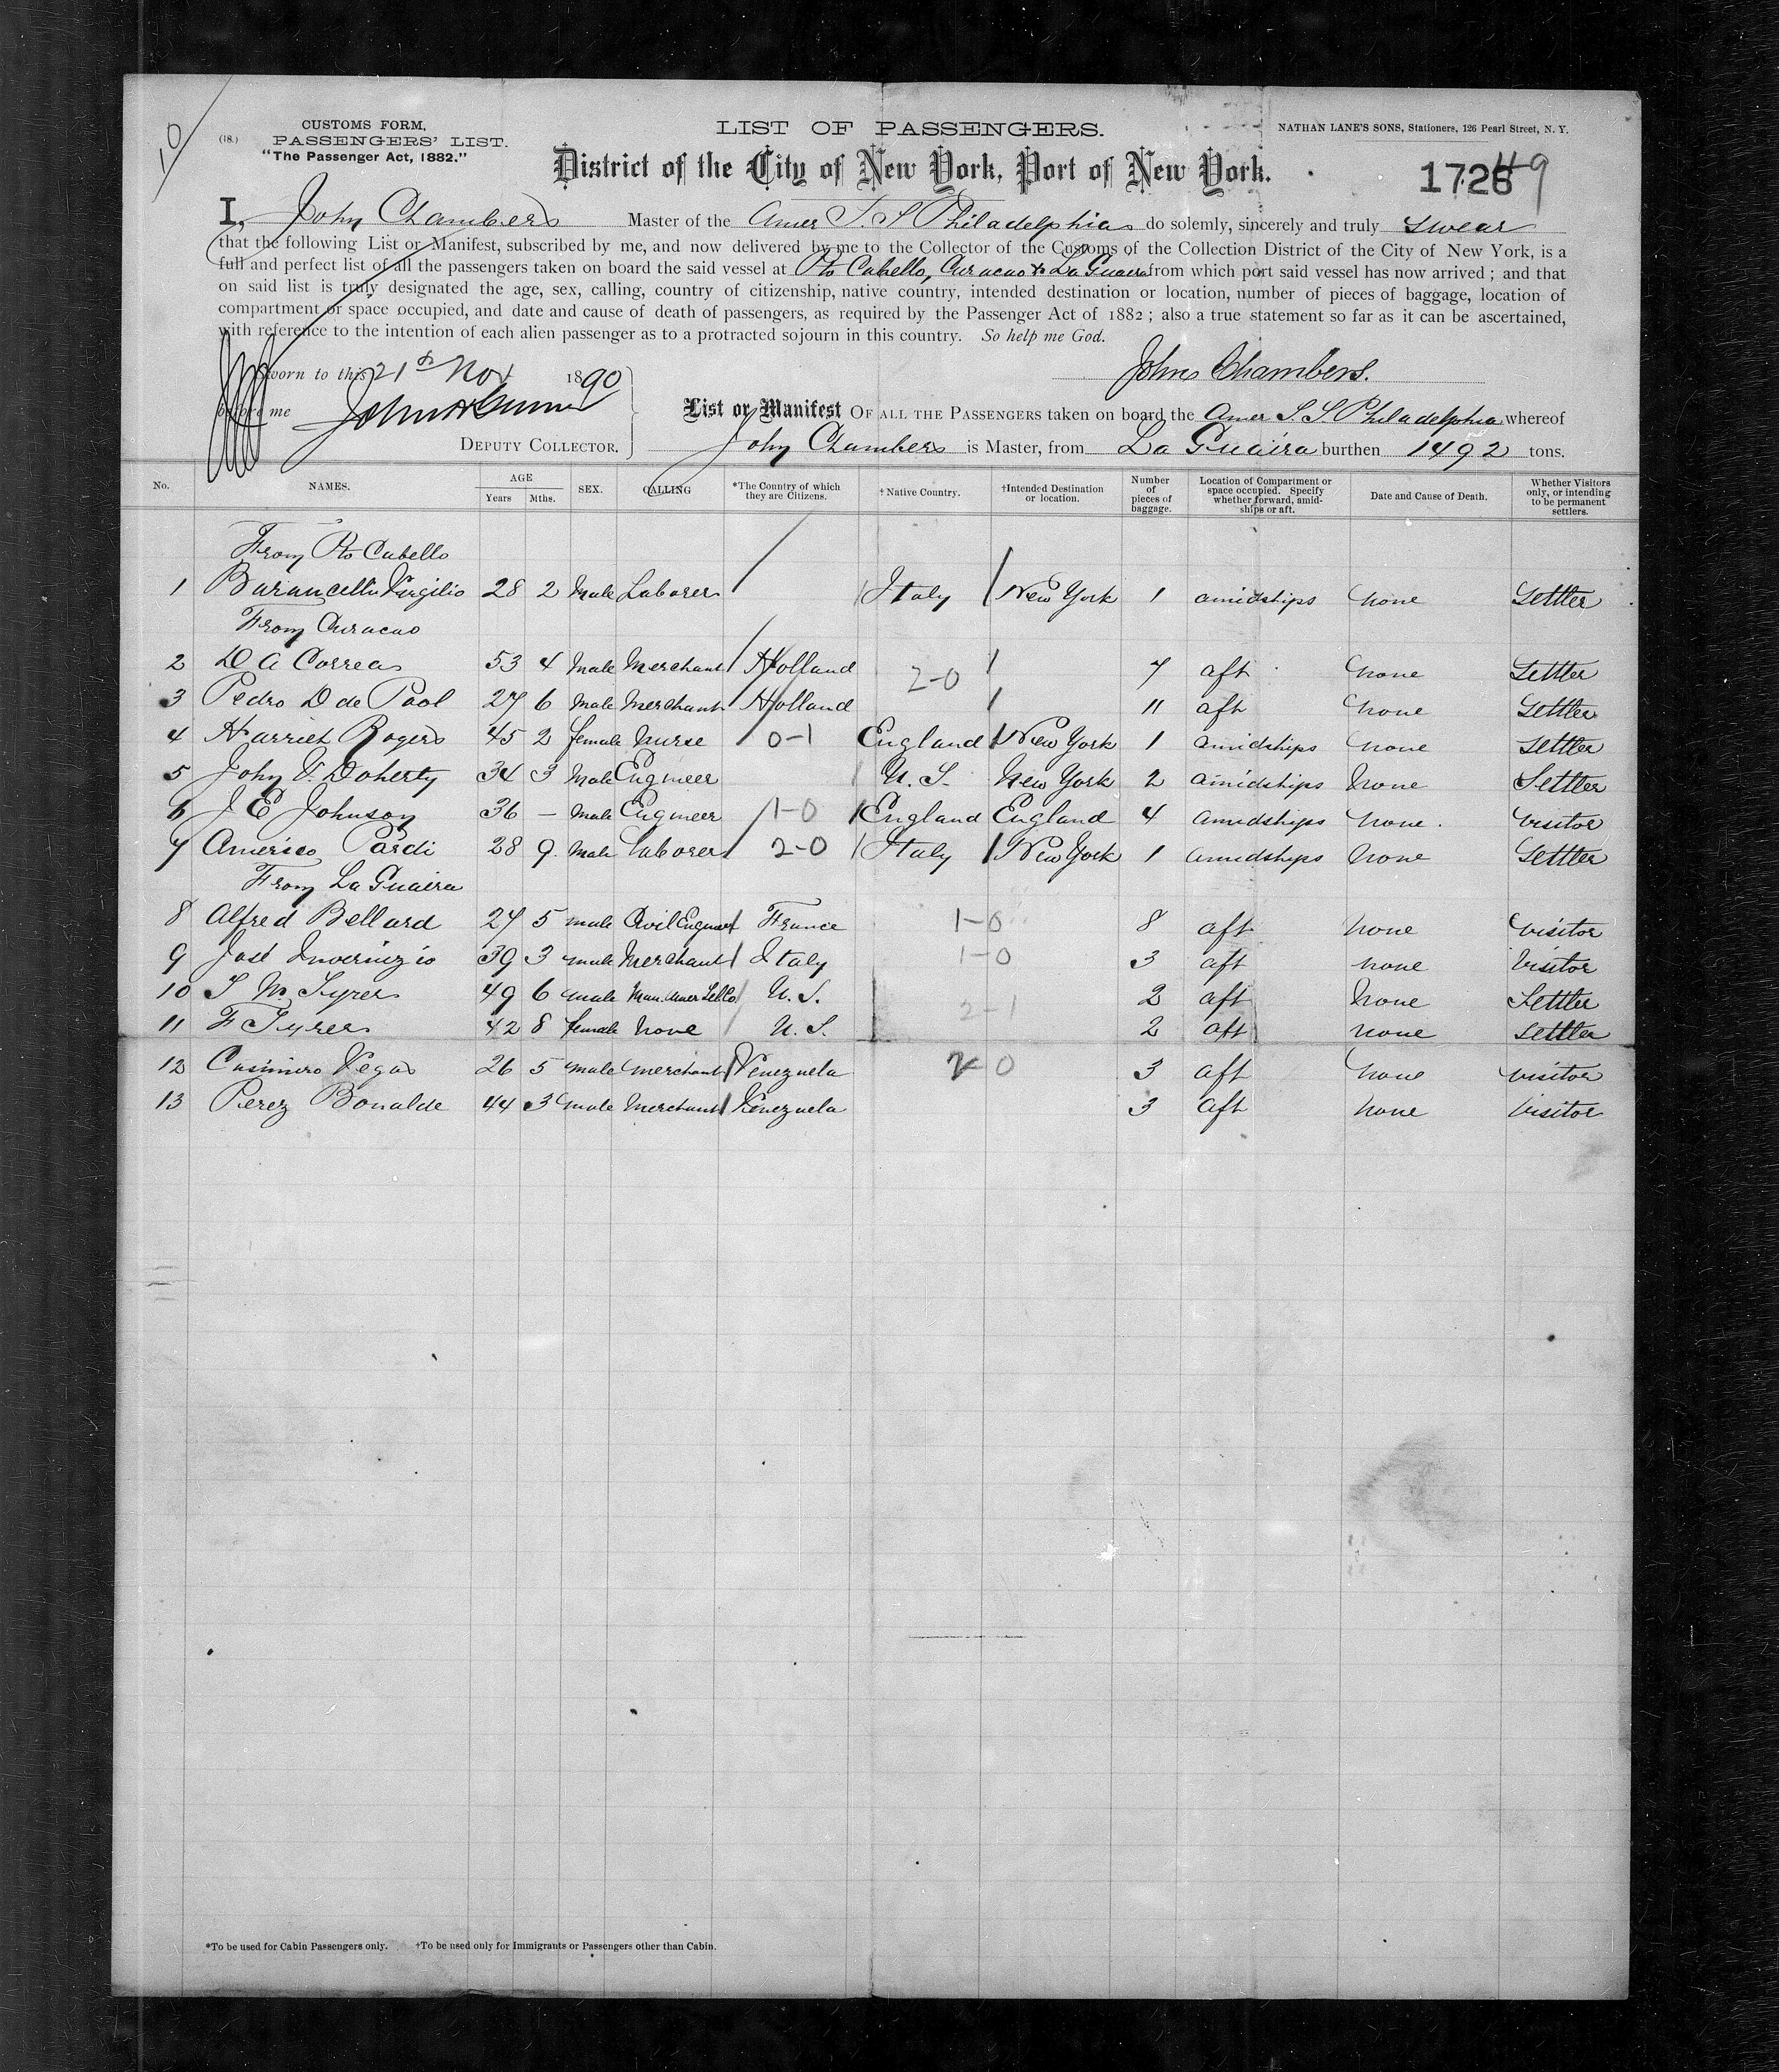 10
(18.) CUSTOMS FORM,
PASSENGERS' LIST.
"The Passenger Act, 1882."
LIST OF PASSENGERS.
NATHAN LANE'S SONS, Stationers, 126 Pearl Street, N. Y.
District of the City of New York, Port of New York.
1726 49
I, John Chambers Master of the Amer S. S Philadelphia do solemly, sincerely and truly swear
that the following List or Manifest, subscribed by me, and now delivered by me to the Collector of the Customs of the Collection District of the City of New York, is a
full and perfect list of all the passengers taken on board the said vessel at Pto Cabello, Curacao & La Guaira from which port said vessel has now arrived; and that
on said list is truly designated the age, sex, calling, country of citizenship, native country, intended destination or location, number of pieces of baggage, location of
compartment or space occupied, and date and cause of death of passengers, as required by the Passenger Act of 1882; also a true statement so far as it can be ascertained,
with reference to the intention of each alien passenger as to a protracted sojourn in this country. So help me God.
Sworn to this 21st Nov 1890
John Chambers.
before me
DEPUTY COLLECTOR.
List or Manifest OF ALL THE PASSENGERS taken on board the Amer S. S. Philadelphia whereof
John Chambers is Master, from La Guaira burthen 1492 tons.
No. NAMES. AGE Years Mths. SEX. CALLING *The Country of which they are Citizens. †Native Country. †Intended Destination or location. Number of pieces of baggage. Location of Compartment or space occupied. Specify whether forward, amidships or aft. Date and Cause of Death. Whether Visitors only, or intending to be permanent settlers.
From Pto Cabello
1 Burancelli Virgilio 28 2 Male Laborer Italy New York 1 amidships none Settler
From Curacao
2 D A Correa 53 4 Male Merchant Holland 7 aft none Settler
2-0
3 Pedro D de Pool 27 6 Male Merchant Holland 11 aft none Settler
4 Harriet Rogers 45 2 female Nurse 0-1 England New York 1 amidships none Settler
5 John V. Doherty 34 3 Male Engineer U. S. New York 2 amidships none Settler
6 J E Johnson 36 – Male Engineer 1-0 England England 4 amidships none. Visitor
7 Americo Pardi 28 9. Male Laborer 2-0 Italy New York 1 amidships none Settler
From La Guaira
8 Alfred Bellard 27 5 male Civil Engineer France 1-0 8 aft none Visitor
9 José Invernizio 39 3 male Merchant Italy 1-0 3 aft none Visitor
10 S M Tyrer 49 6 male Man. Amer Tel Co U. S. 2 aft none Settler
2-1
11 F Tyrer 42 8 female None U. S. 2 aft none Settler
12 Casimiro Vegas 26 5 male merchant Venezuela 2-0 3 aft none Visitor
13 Perez Bonalde 44 3 male Merchant Venezuela 3 aft none Visitor
*To be used for Cabin Passengers only. †To be used only for Immigrants or Passengers other than Cabin.